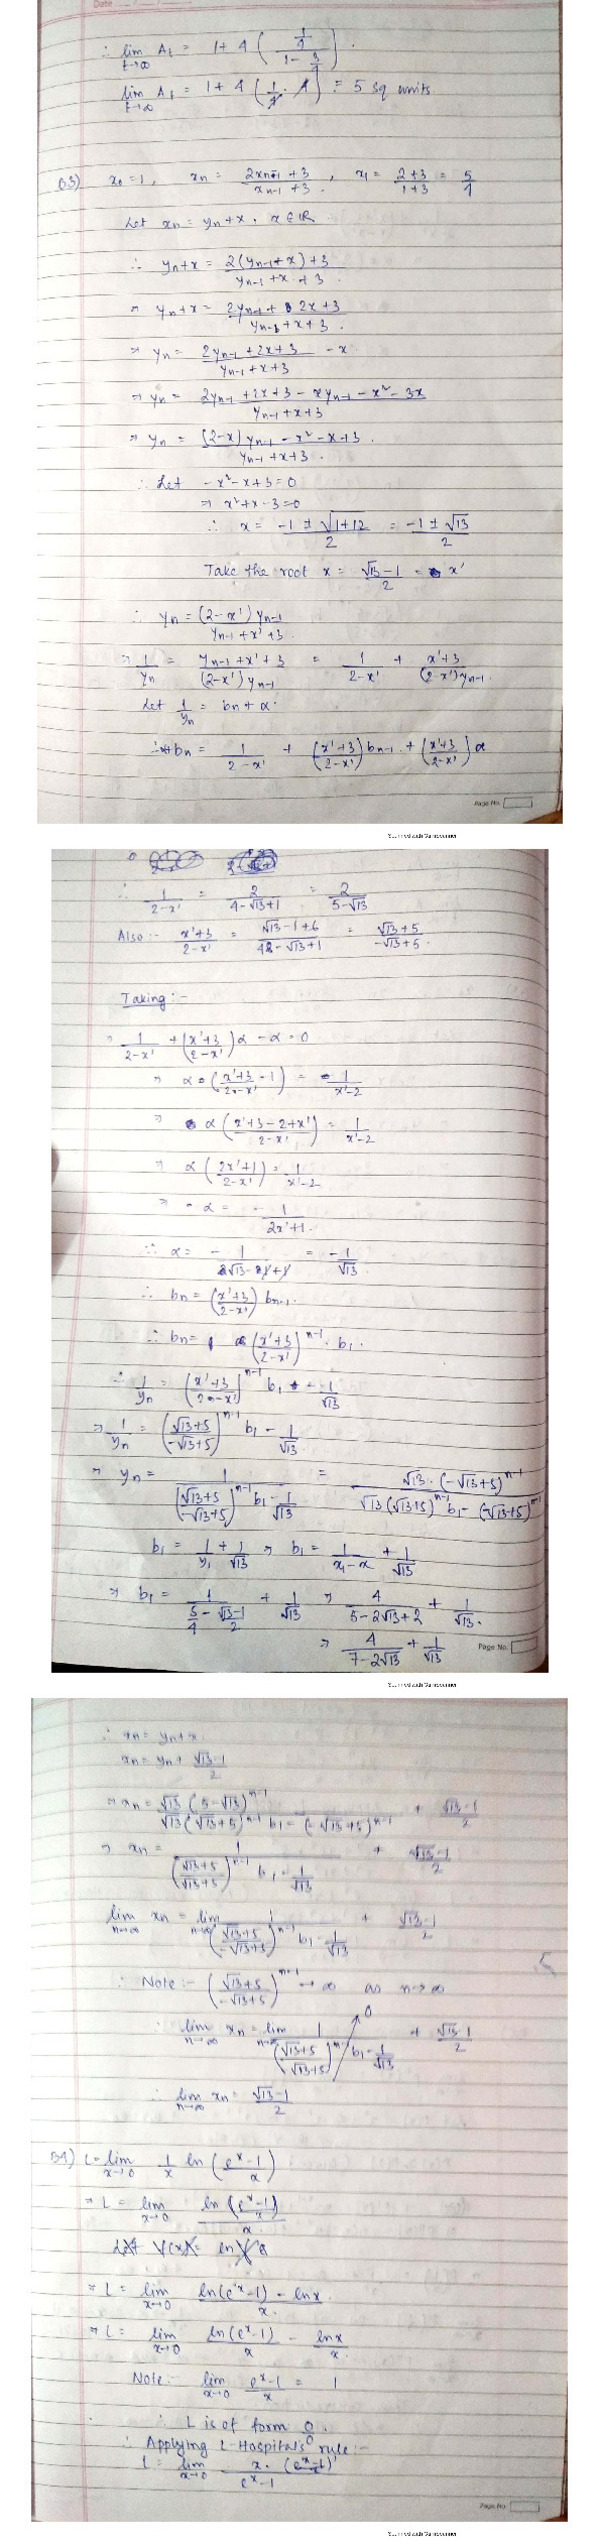 Date
∴ lim t→∞ A_t = 1 + 4 ( (1/9) / (1 - 4/9) ).
lim t→∞ A_t = 1 + 4 = 5 sq units
33) x₀ = 1, x_n = (2x_{n-1} + 3)/(x_{n-1} + 3), x₁ = (2+3)/(1+3) = 5/4
Let x_n = y_n + x, x ∈ ℝ
∴ y_n + x = (2(y_{n-1} + x) + 3)/(y_{n-1} + x + 3)
⇒ y_n + x = (2y_{n-1} + 2x + 3)/(y_{n-1} + x + 3).
⇒ y_n = (2y_{n-1} + 2x + 3)/(y_{n-1} + x + 3) - x.
⇒ y_n = (2y_{n-1} + 2x + 3 - xy_{n-1} - x² - 3x)/(y_{n-1} + x + 3)
⇒ y_n = ((2-x)y_{n-1} - x² - x + 3)/(y_{n-1} + x + 3).
∴ Let -x² - x + 3 = 0
⇒ x² + x - 3 = 0
∴ x = (-1 ± √(1+12))/2 = (-1 ± √13)/2
Take the root x = (√13 - 1)/2 = x'
∴ y_n = ((2-x')y_{n-1})/(y_{n-1} + x' + 3).
⇒ 1/y_n = (y_{n-1} + x' + 3)/((2-x')y_{n-1}) = 1/(2-x') + (x'+3)/((2-x')y_{n-1}).
Let 1/y_n = b_n + α.
∴ α + b_n = 1/(2-x') + ((x'+3)/(2-x')) b_{n-1} + ((x'+3)/(2-x')) α
Page No.
∴ 1/(2-x') = 2/(4-√13+1) = 2/(5-√13)
Also :- (x'+3)/(2-x') = (√13-1+6)/(4-√13+1) = (√13+5)/(-√13+5).
Taking :-
1/(2-x') + ((x'+3)/(2-x'))α - α = 0
⇒ α((x'+3)/(2-x') - 1) = 1/(x'-2)
⇒ α((x'+3-2+x')/(2-x')) = 1/(x'-2)
⇒ α((2x'+1)/(2-x')) = 1/(x'-2)
⇒ α = -1/(2x'+1).
∴ α = -1/(√13-1+1) = -1/√13.
∴ b_n = ((x'+3)/(2-x')) b_{n-1}.
∴ b_n = ((x'+3)/(2-x'))^{n-1} · b₁.
∴ 1/y_n = ((x'+3)/(2-x'))^{n-1} b₁ - 1/√13
⇒ 1/y_n = ((√13+5)/(-√13+5))^{n-1} b₁ - 1/√13
⇒ y_n = 1/(((√13+5)/(-√13+5))^{n-1} b₁ - 1/√13) = (√13·(-√13+5)^{n-1})/(√13(√13+5)^{n-1} b₁ - (-√13+5)^{n-1})
b₁ = 1/y₁ + 1/√13 ⇒ b₁ = 1/(x₁-x) + 1/√13
⇒ b₁ = 1/(5/4 - (√13-1)/2) + 1/√13 ⇒ 4/(5-2√13+2) + 1/√13.
⇒ 4/(7-2√13) + 1/√13
Page No.
∴ x_n = y_n + x.
x_n = y_n + (√13-1)/2
⇒ x_n = (√13 (5-√13)^{n-1})/(√13(√13+5)^{n-1} b₁ - (-√13+5)^{n-1}) + (√13-1)/2
⇒ x_n = 1/(((√13+5)/(-√13+5))^{n-1} b₁ - 1/√13) + (√13-1)/2
lim n→∞ x_n = lim n→∞ 1/(((√13+5)/(-√13+5))^{n-1} b₁ - 1/√13) + (√13-1)/2
∴ Note :- ((√13+5)/(-√13+5))^{n-1} → ∞ as n→∞
0
∴ lim n→∞ x_n = lim n→∞ 1/(((√13+5)/(-√13+5))^{n-1} b₁ - 1/√13) + (√13-1)/2
∴ lim n→∞ x_n = (√13-1)/2
34) L = lim x→0 1/x ln((e^x-1)/x)
⇒ L = lim x→0 ln((e^x-1)/x)/x.
⇒ L = lim x→0 (ln(e^x-1) - lnx)/x.
⇒ L = lim x→0 ln(e^x-1)/x - lnx/x.
Note :- lim x→0 (e^x-1)/x = 1
∴ L is of form 0/0.
∴ Applying L-Hospitals rule :-
L = lim x→0 x·((e^x-1)/x)'/(e^x-1)
Page No.